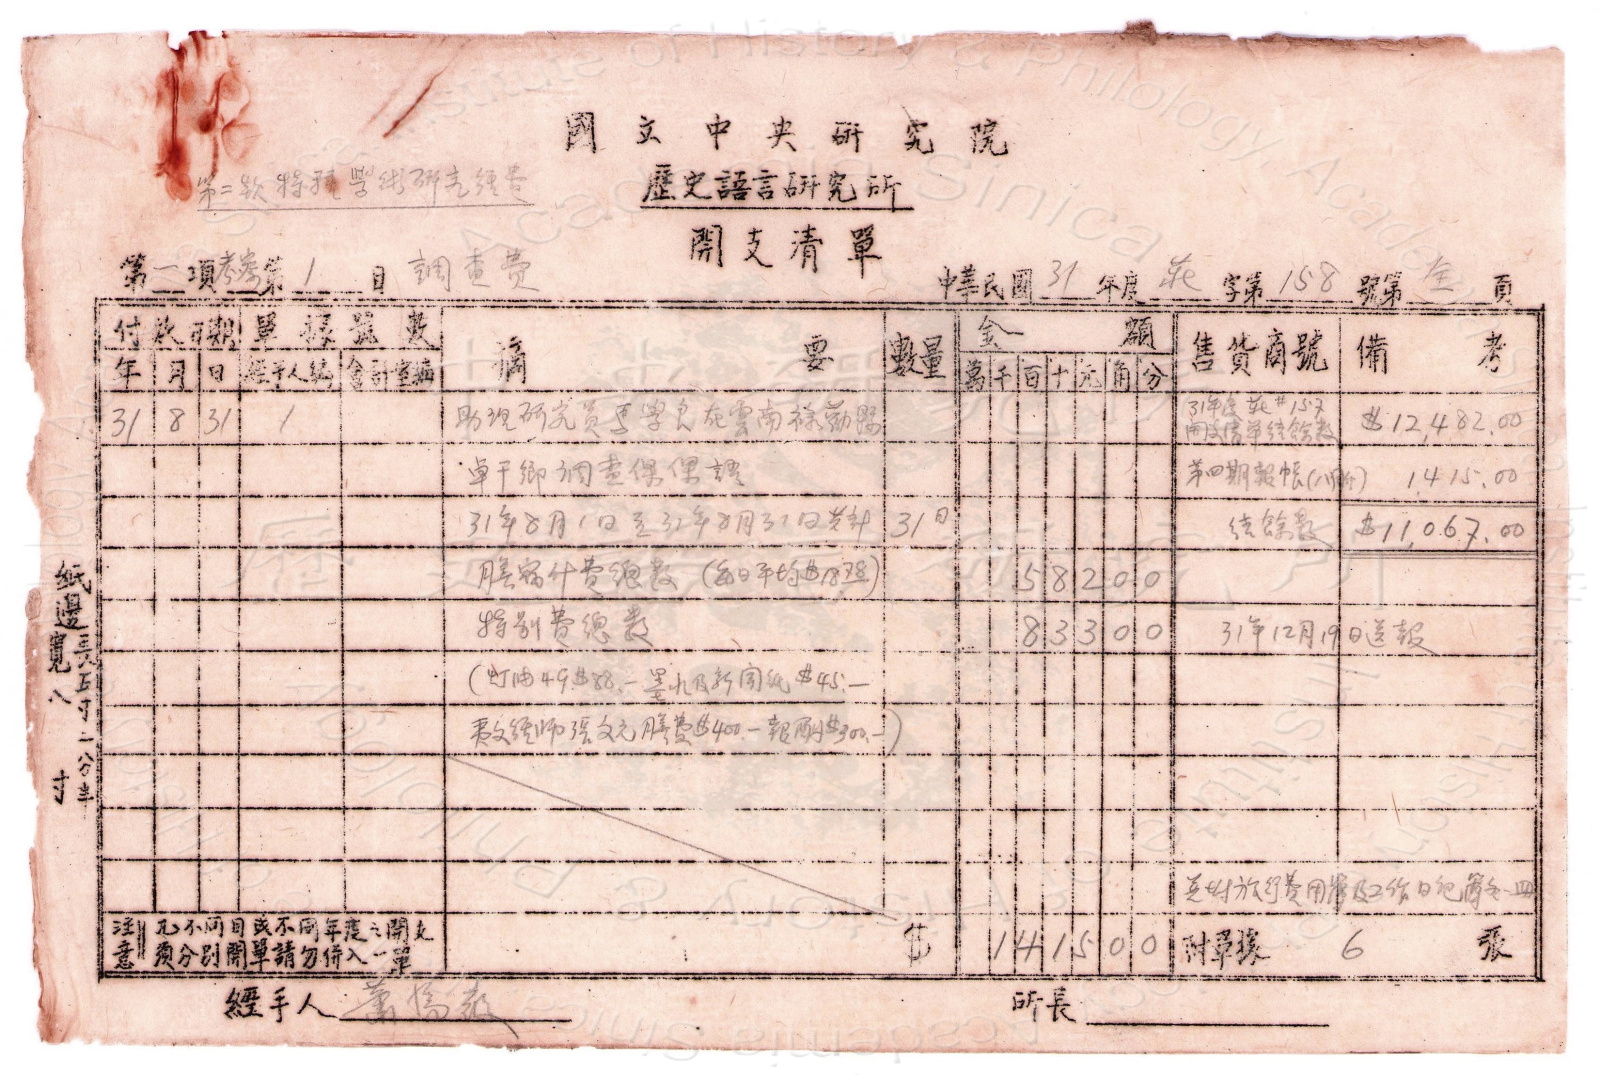 國立中央研究院
第二款特種學術研究經費
歷史語言研究所
開支清單
第二項考察第1目 調查費
中華民國31年度 莊 字第158號第全頁
付款日期 單據號數 摘要 數量 金額 售貨商號 備考
年 月 日 經手人編 會計室編 萬千百十元角分
31 8 31 1 助理研究員馬學良在雲南祿勸縣 31年度莊#157開支清單結餘數 $12,482.00
卓干鄉調查倮倮語 第四期報帳(八月份) 1,415.00
31年8月1日至31年8月31日共計 31日 結餘數 $11,067.00
膳宿什費總數 58200
特別費總數 83300 31年12月19日送報
$88.— 墨水及新聞紙 $45.—
夷文經師張文元膳費$400.—報酬$300.—)
共附旅行費用簿及工作日記簿各一冊
注意 凡不同目或不同年度之開支須分別開單請勿併入一單
$ 141500 附單據 6 張
經手人
所長
紙邊寬八寸
長五寸二分半